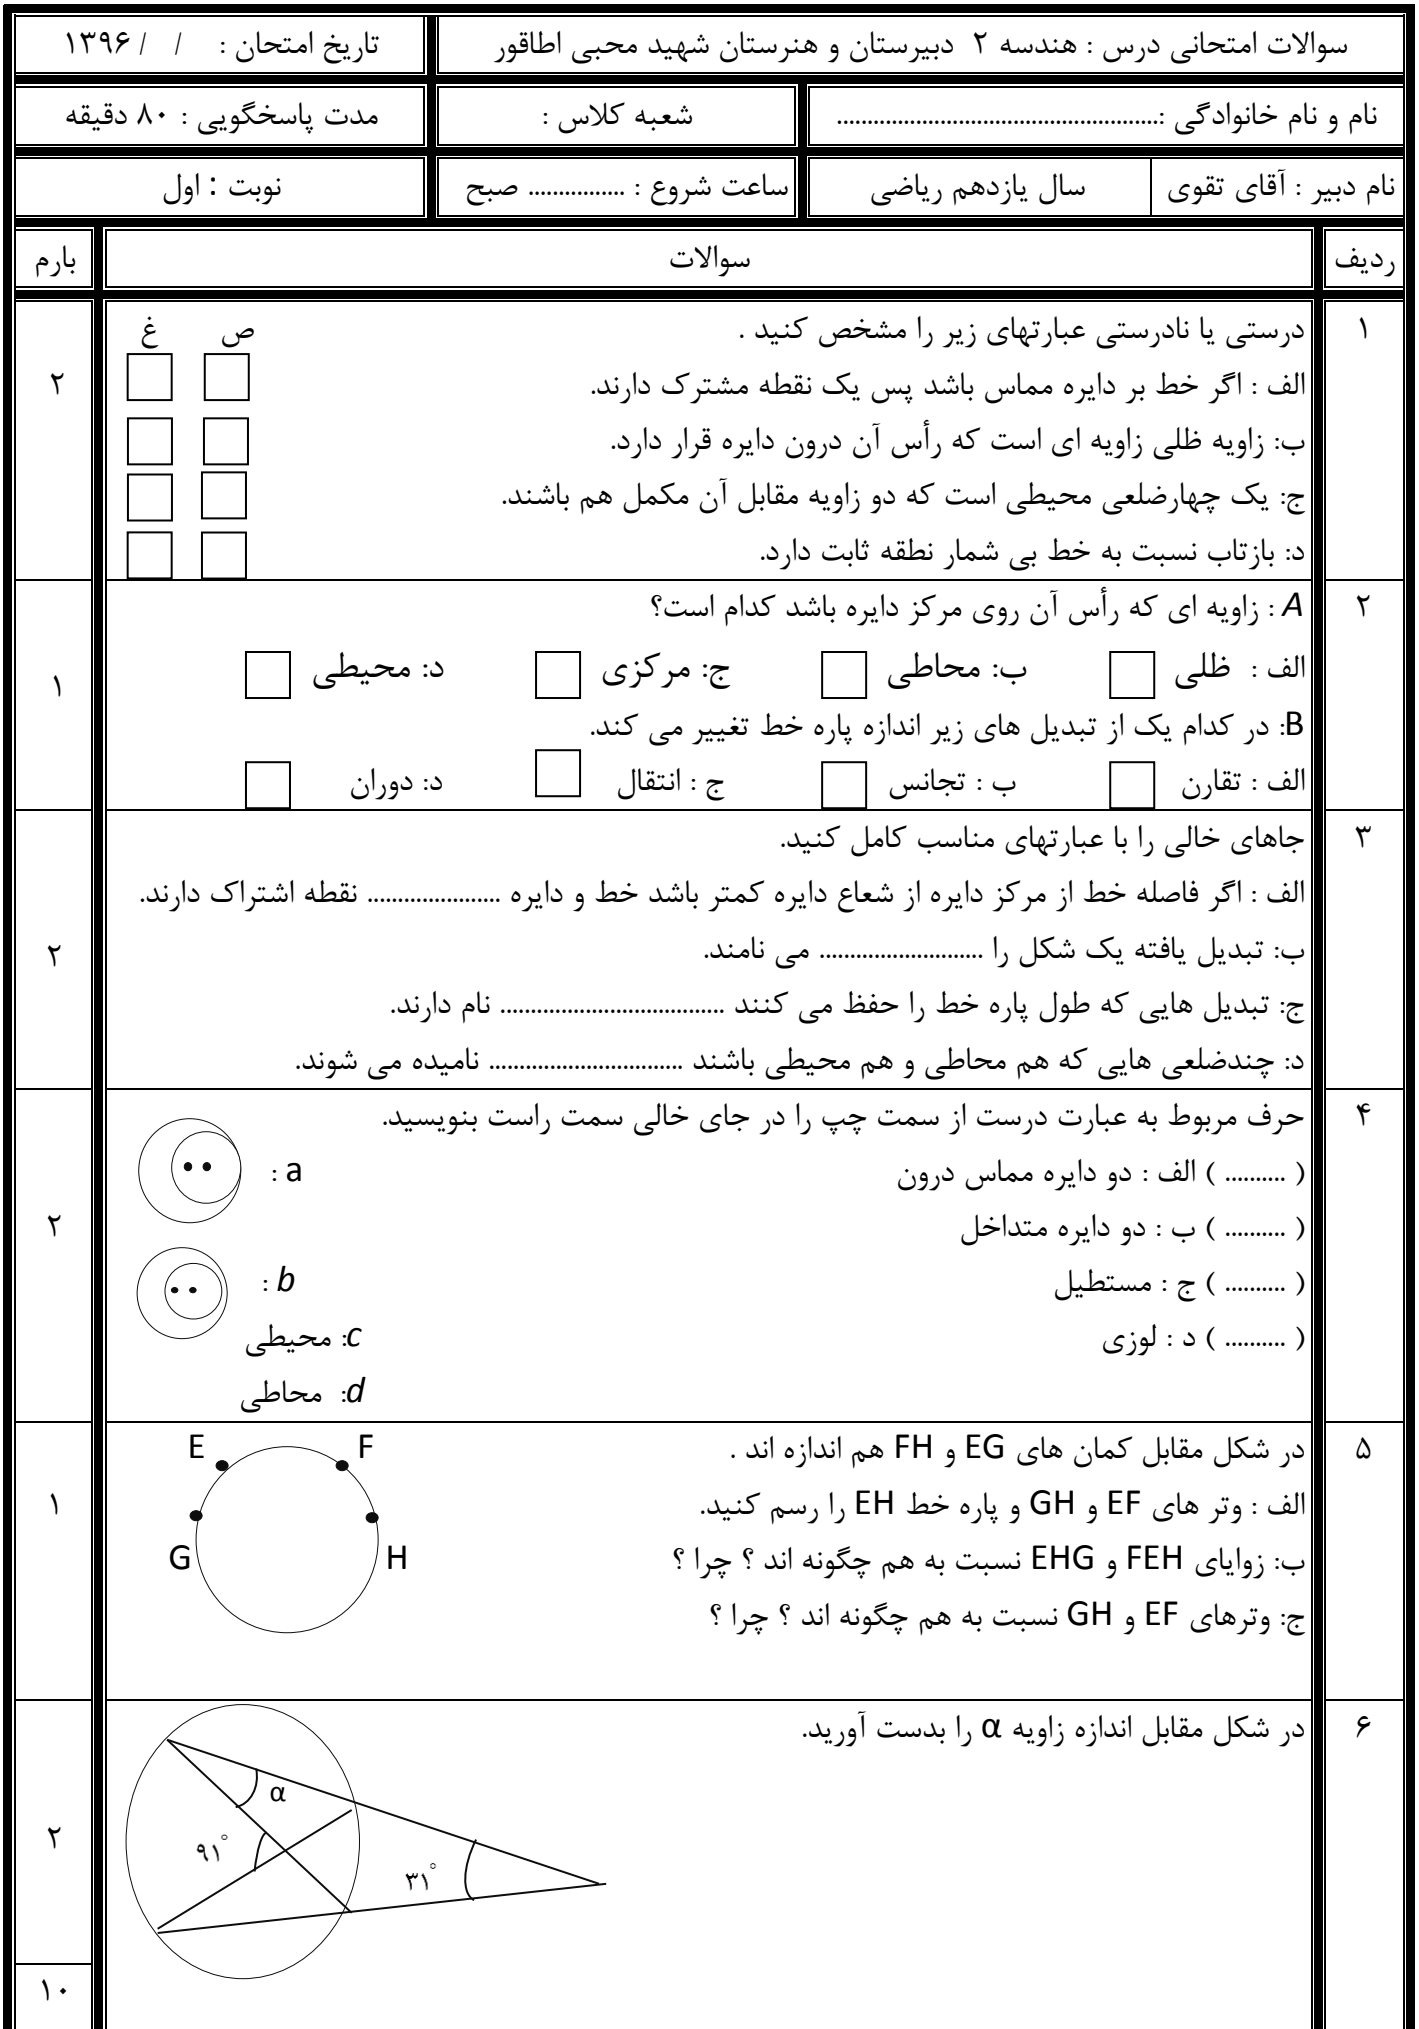 سوالات امتحانی درس : هندسه ۲ دبیرستان و هنرستان شهید محبی اطاقور
تاریخ امتحان : / / ۱۳۹۶
نام و نام خانوادگی :.....................................................
شعبه کلاس :
مدت پاسخگویی : ۸۰ دقیقه
نام دبیر : آقای تقوی
سال یازدهم ریاضی
ساعت شروع : ................ صبح
نوبت : اول
ردیف
سوالات
بارم
۱
درستی یا نادرستی عبارتهای زیر را مشخص کنید .
ص غ
الف : اگر خط بر دایره مماس باشد پس یک نقطه مشترک دارند.
ب: زاویه ظلی زاویه ای است که رأس آن درون دایره قرار دارد.
ج: یک چهارضلعی محیطی است که دو زاویه مقابل آن مکمل هم باشند.
د: بازتاب نسبت به خط بی شمار نطقه ثابت دارد.
۲
۲
A : زاویه ای که رأس آن روی مرکز دایره باشد کدام است؟
الف : ظلی ب: محاطی ج: مرکزی د: محیطی
B: در کدام یک از تبدیل های زیر اندازه پاره خط تغییر می کند.
الف : تقارن ب : تجانس ج : انتقال د: دوران
۱
۳
جاهای خالی را با عبارتهای مناسب کامل کنید.
الف : اگر فاصله خط از مرکز دایره از شعاع دایره کمتر باشد خط و دایره ...................... نقطه اشتراک دارند.
ب: تبدیل یافته یک شکل را ........................... می نامند.
ج: تبدیل هایی که طول پاره خط را حفظ می کنند ..................................... نام دارند.
د: چندضلعی هایی که هم محاطی و هم محیطی باشند ................................ نامیده می شوند.
۲
۴
حرف مربوط به عبارت درست از سمت چپ را در جای خالی سمت راست بنویسید.
( .......... ) الف : دو دایره مماس درون
a :
( .......... ) ب : دو دایره متداخل
( .......... ) ج : مستطیل
b :
( .......... ) د : لوزی
c: محیطی
d: محاطی
۲
۵
در شکل مقابل کمان های EG و FH هم اندازه اند .
الف : وتر های EF و GH و پاره خط EH را رسم کنید.
ب: زوایای FEH و EHG نسبت به هم چگونه اند ؟ چرا ؟
ج: وترهای EF و GH نسبت به هم چگونه اند ؟ چرا ؟
E F
G H
۱
۶
در شکل مقابل اندازه زاویه α را بدست آورید.
α
۹۱°
۳۱°
۲
۱۰